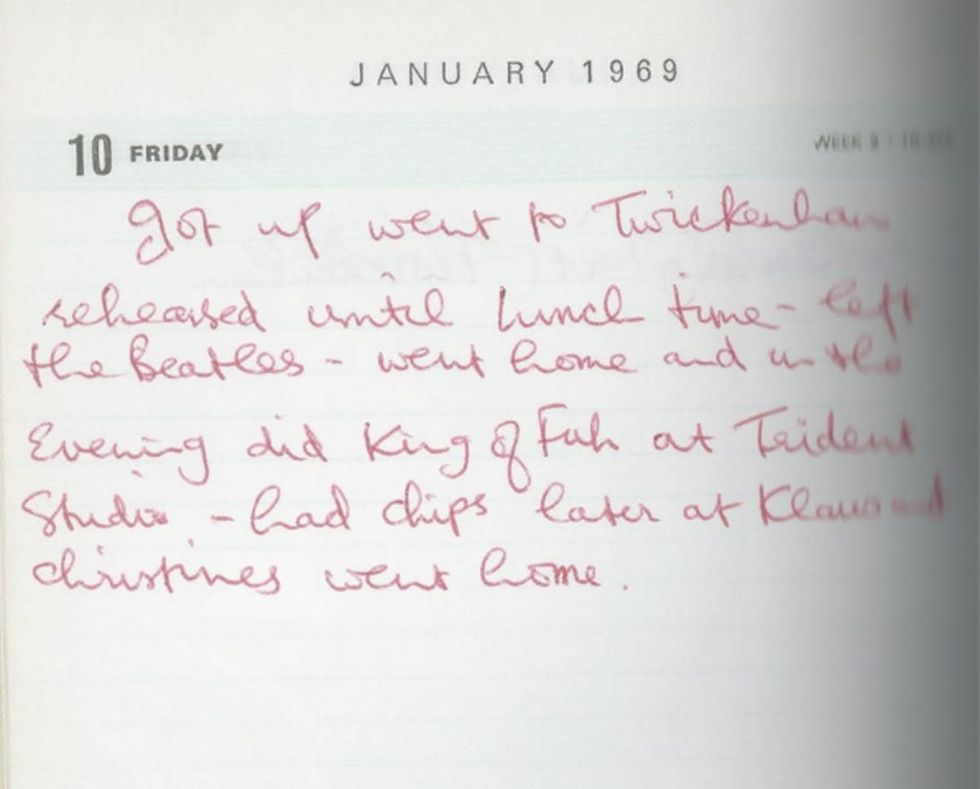 JANUARY 1969
10 FRIDAY WEEK
got up went to Twickenham
rehearsed until lunch time - left
the Beatles - went home and in the
Evening did King of Fuh at Trident
Studio - had chips later at Klaus and
christines went home.